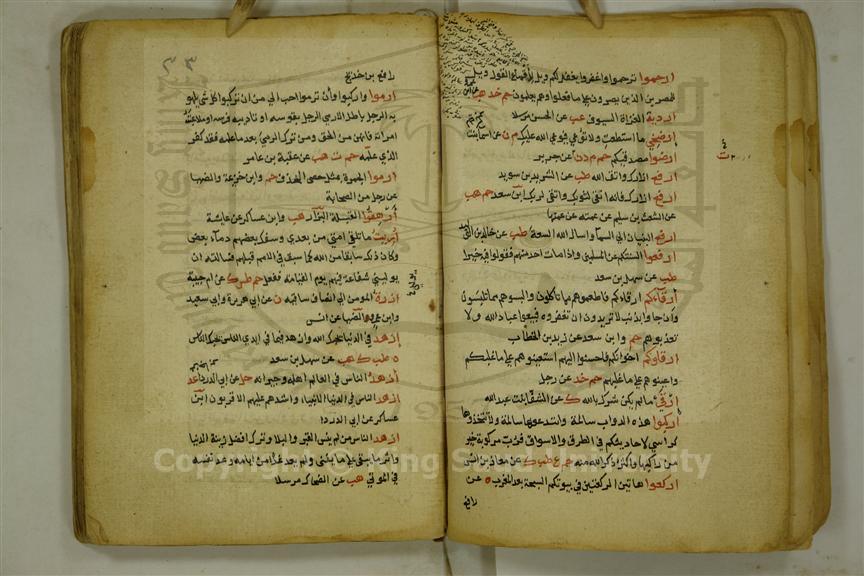 ارحموا ترحموا واغفروا يغفر لكم ويل لاقماع القول ويل
للمصرين الذين يصرون على ما فعلوا وهم يعلمون حم خد هب
اردية الغزاة السيوف عب عن الحسن مرسلا
ارضخي ما استطعت ولا توعي فيوعي الله عليك م ن عن اسما بنت
ارضوا مصدقيكم حم م د ن عن جرير
ارفع ازارك واتق الله طب عن الشريد بن سويد
ارفع ازارك فانه انقى لثوبك واتقى لربك ابن سعد حم هب
عن الاشعث بن سليم عن عمته عن عمها
ارفع البنيان الى السما واسال الله السعة طب عن خالد بن الوليد
ارفعوا السنتكم عن المسلمين واذا مات احد منهم فقولوا فيه خيرا
طب عن سهل بن سعد
ارقاءكم ارقاءكم فاطعموهم مما تاكلون والبسوهم مما تلبسون
وان جاوا بذنب لا تريدون ان تغفروه فبيعوا عباد الله ولا
تعذبوهم حم وابن سعد عن زيد بن الخطاب
ارقاوكم اخوانكم فاحسنوا اليهم استعينوهم على ما غلبكم
واعينوهم على ما غلبهم حم خد عن رجل
ارقي ما لم يكن شرك بالله ك عن الشفا بنت عبد الله
اركبوا هذه الدواب سالمة وابتدعوها سالمة ولا تتخذوها
كراسي لاحاديثكم في الطرق والاسواق فرب مركوبة خير
من راكبها واكثر ذكرا لله منه حم ع طب ك عن معاذ بن انس
اركعوا هاتين الركعتين في بيوتكم السبحة بعد المغرب ه عن
رافع
رافع بن خديج
ارموا واركبوا وأن ترموا احب الي من ان تركبوا كل شي يلهو
به الرجل باطل الا رمي الرجل بقوسه او تاديبه فرسه او ملاعبته
امراته فانهن من الحق ومن ترك الرمي بعد ما علمه فقد كفر
الذي علمه حم ت هب عن عقبة بن عامر
ارموا الجمرة بمثل حصى الخذف حم وابن خزيمة والضيا
عن رجل من الصحابة
ارهقوا القبلة البزار هب وابن عساكر عن عايشة
أريت ما تلقى امتي من بعدي وسفك بعضهم دماء بعض
وكان ذلك سابقا من الله كما سبق في الامم قبلهم فسالته ان
يوليني شفاعة فيهم يوم القيامة ففعل حم طس ك عن ام حبيبة
ازرة المومن الى انصاف ساقيه ن عن ابي هريرة وابي سعيد
وابن عمر والضيا عن انس
ازهد في الدنيا يحبك الله وازهد فيما في ايدي الناس يحبك الناس
ه طب ك هب عن سهل بن سعد
أزهد الناس في العالم اهله وجيرانه حل عن ابي الدرداء عد
ازهد الناس في الدنيا الانبياء واشدهم عليهم الاقربون ابن
عساكر عن ابي الدردا
ازهد الناس من لم ينس القبر والبلا وترك افضل زينة الدنيا
واثر ما يبقى على ما يفنى ولم يعد غدا من ايامه وعد نفسه
في الموتى هب عن الضحاك مرسلا
Copyright © King Saud University